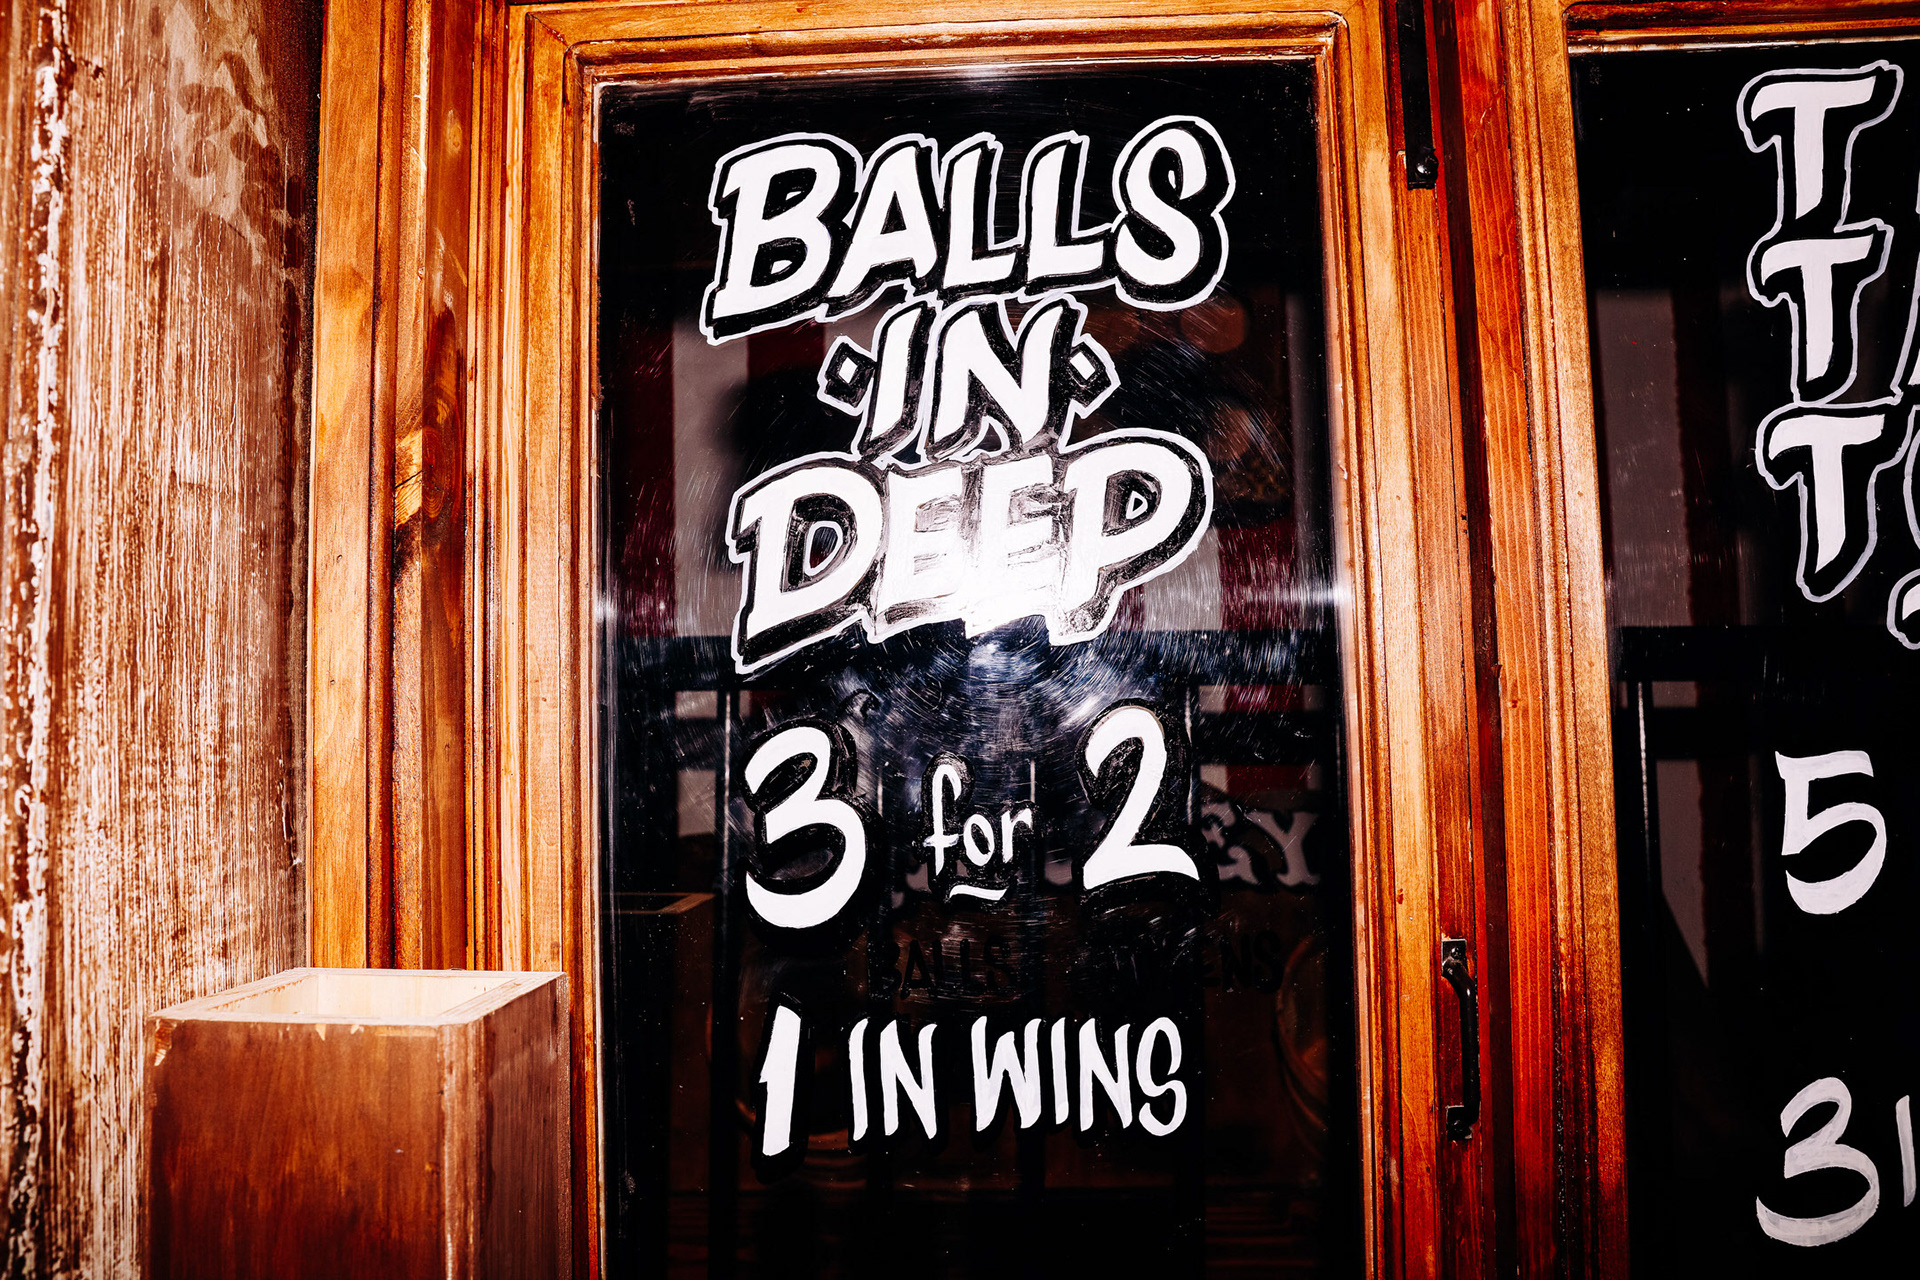 BALLS
·IN·
DEEP
3 for 2
1 IN WINS
T
T
T
5
3
BALLS